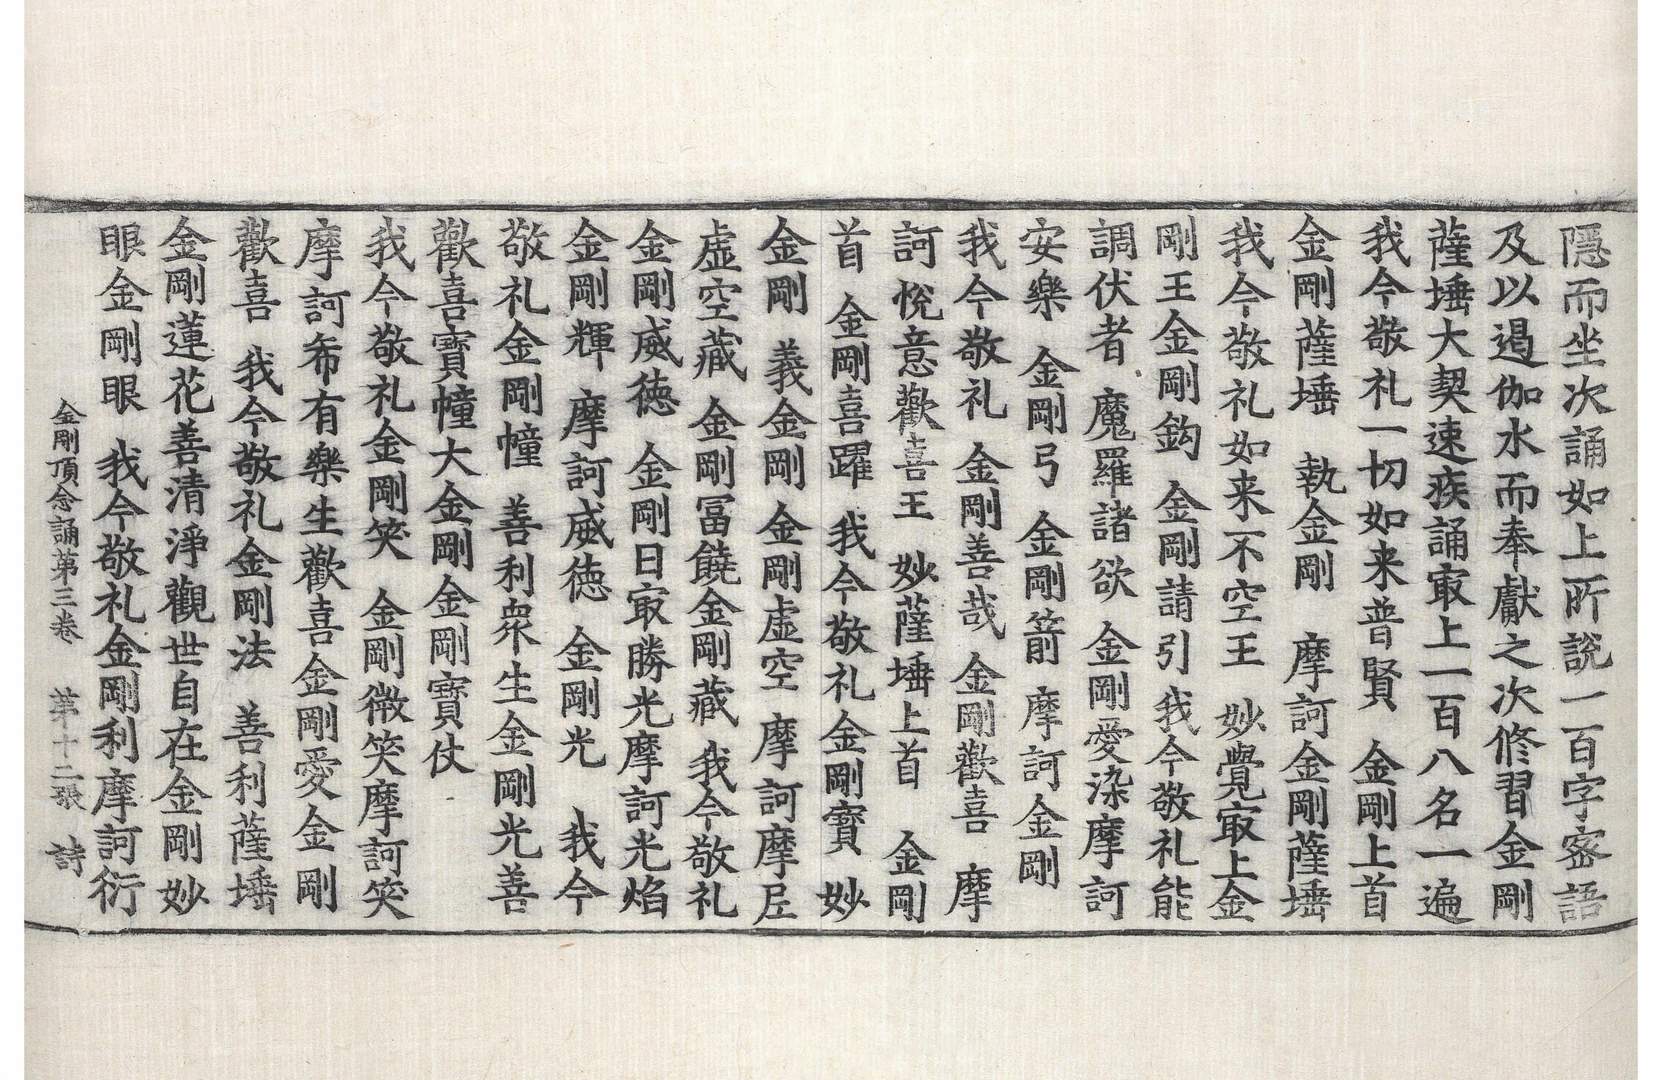 隱而坐次誦如上所説一百字密語
及以遏伽水而奉獻之次修習金剛
薩埵大契速疾誦㝡上一百八名一遍
我今敬礼一切如来普賢　金剛上首
金剛薩埵　執金剛　摩訶金剛薩埵
我今敬礼如来不空王　妙覺㝡上金
剛王金剛鈎　金剛請引我今敬礼能
調伏者　魔羅諸欲　金剛愛染摩訶
安樂　金剛弓　金剛箭　摩訶金剛
我今敬礼　金剛善哉　金剛歡喜　摩
訶悅意歡喜王　妙薩埵上首　金剛
首　金剛喜躍　我今敬礼金剛寶　妙
金剛　義金剛　金剛虚空　摩訶摩尼
虚空藏　金剛冨饒金剛藏　我今敬礼
金剛威德　金剛日㝡勝光摩訶光焰
金剛輝　摩訶威德　金剛光　我今
敬礼金剛幢　善利衆生金剛光善
歡喜寶幢大金剛金剛寶仗
我今敬礼金剛笑　金剛微笑摩訶笑
摩訶希有樂生歡喜金剛愛金剛
歡喜　我今敬礼金剛法　善利薩埵
金剛蓮花善清淨觀世自在金剛妙
眼金剛眼　我今敬礼金剛利摩訶衍
金剛頂念誦第三卷　第十二張　詩